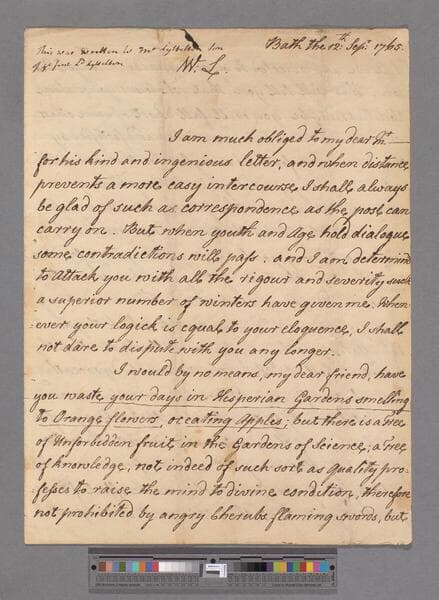 This was written to Mr Lyttelton Son
of ye first Ld Lyttelton
Bath the 12th Sepr 1765.
W. L.
I am much obliged to my dear Mr —
for his kind and ingenious letter, and when distance
prevents a more easy intercourse, I shall always
be glad of such a correspondence as the post can
carry on. But when youth and Age hold dialogue
some contradictions will pass. and I am determind
to attack you with all the rigour and severity such
a superior number of winters have given me. When-
ever your logick is equal to your eloquence, I shall
not dare to dispute with you any longer.
I would by no means, my dear friend, have
you waste your days in Hesperian Gardens smelling
to Orange flowers, or eating Apples; but there is a Tree
of Unforbidden fruit in the Gardens of Science; a Tree
of knowledge, not indeed of such sort as quality pro-
fesses to raise the mind to divine condition, therefore
not prohibited by angry Cherubs, flaming swords, but